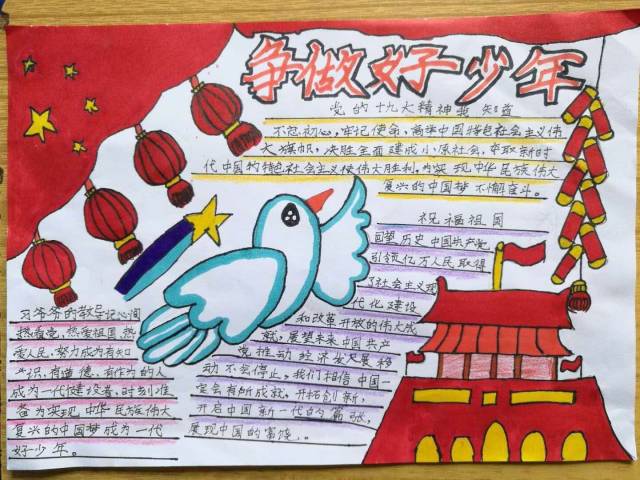 争做好少年
党的十九大精神我知道
不忘初心,牢记使命,高举中国特色社会主义伟
大旗帜,决胜全面建成小康社会,夺取新时
代中国的特色社会主义伟大胜利,为实现中华民族伟大
复兴的中国梦不懈奋斗。
祝福祖国
回望历史中国共产党
引领亿万人民取得
了社会主义现
代化建设
和改革开放的伟大成
就,展望未来中国共产
党推动经济发展移
动不会停止,我们相信中国一
定会有所成就,开拓创新,
开启中国新一代的篇张,
展现中国的富饶。
习爷爷的教导记心间
热爱党,热爱祖国热
爱人民,努力成为有知
识,有道德,有作为的人
成为一代建设者,时刻准
备为实现中华民族伟大
复兴的中国梦成为一代
好少年。